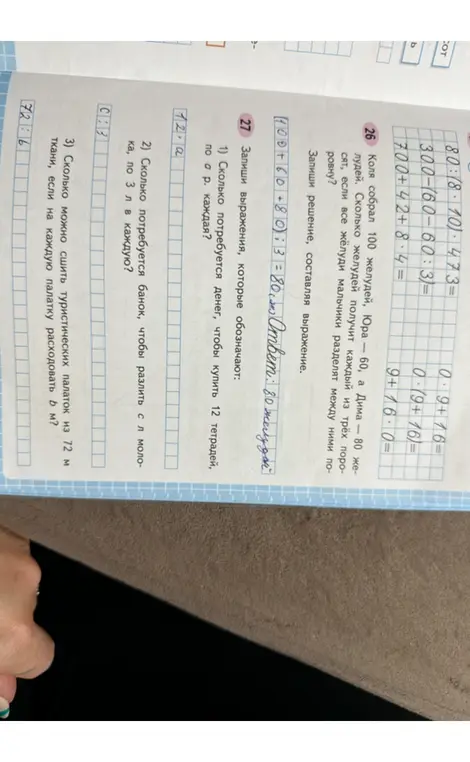 80:(8·10)·473=
0·9+16=
300-(60-60:3)=
0·(9+16)=
700+42+8·4=
9+16·0=
26 Коля собрал 100 желудей, Юра — 60, а Дима — 80 же-
лудей. Сколько желудей получит каждый из трёх поро-
сят, если все жёлуди мальчики разделят между ними по-
ровну?
Запиши решение, составляя выражение.
(100+60+80):3=80(ж) Ответ: 80 желудей
27 Запиши выражения, которые обозначают:
1) Сколько потребуется денег, чтобы купить 12 тетрадей,
по a р. каждая?
12·a
2) Сколько потребуется банок, чтобы разлить c л моло-
ка, по 3 л в каждую?
c:3
3) Сколько можно сшить туристических палаток из 72 м
ткани, если на каждую палатку расходовать b м?
72:b